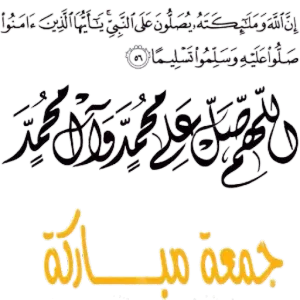 إِنَّ ٱللَّهَ وَمَلَـٰٓئِكَتَهُۥ يُصَلُّونَ عَلَى ٱلنَّبِىِّ ۚ يَـٰٓأَيُّهَا ٱلَّذِينَ ءَامَنُوا۟
صَلُّوا۟ عَلَيْهِ وَسَلِّمُوا۟ تَسْلِيمًا ﴿٥٦﴾
اللّهم صَلِّ عَلى محمدٍ وَآلِ محمدٍ
جمعة مبـاركة